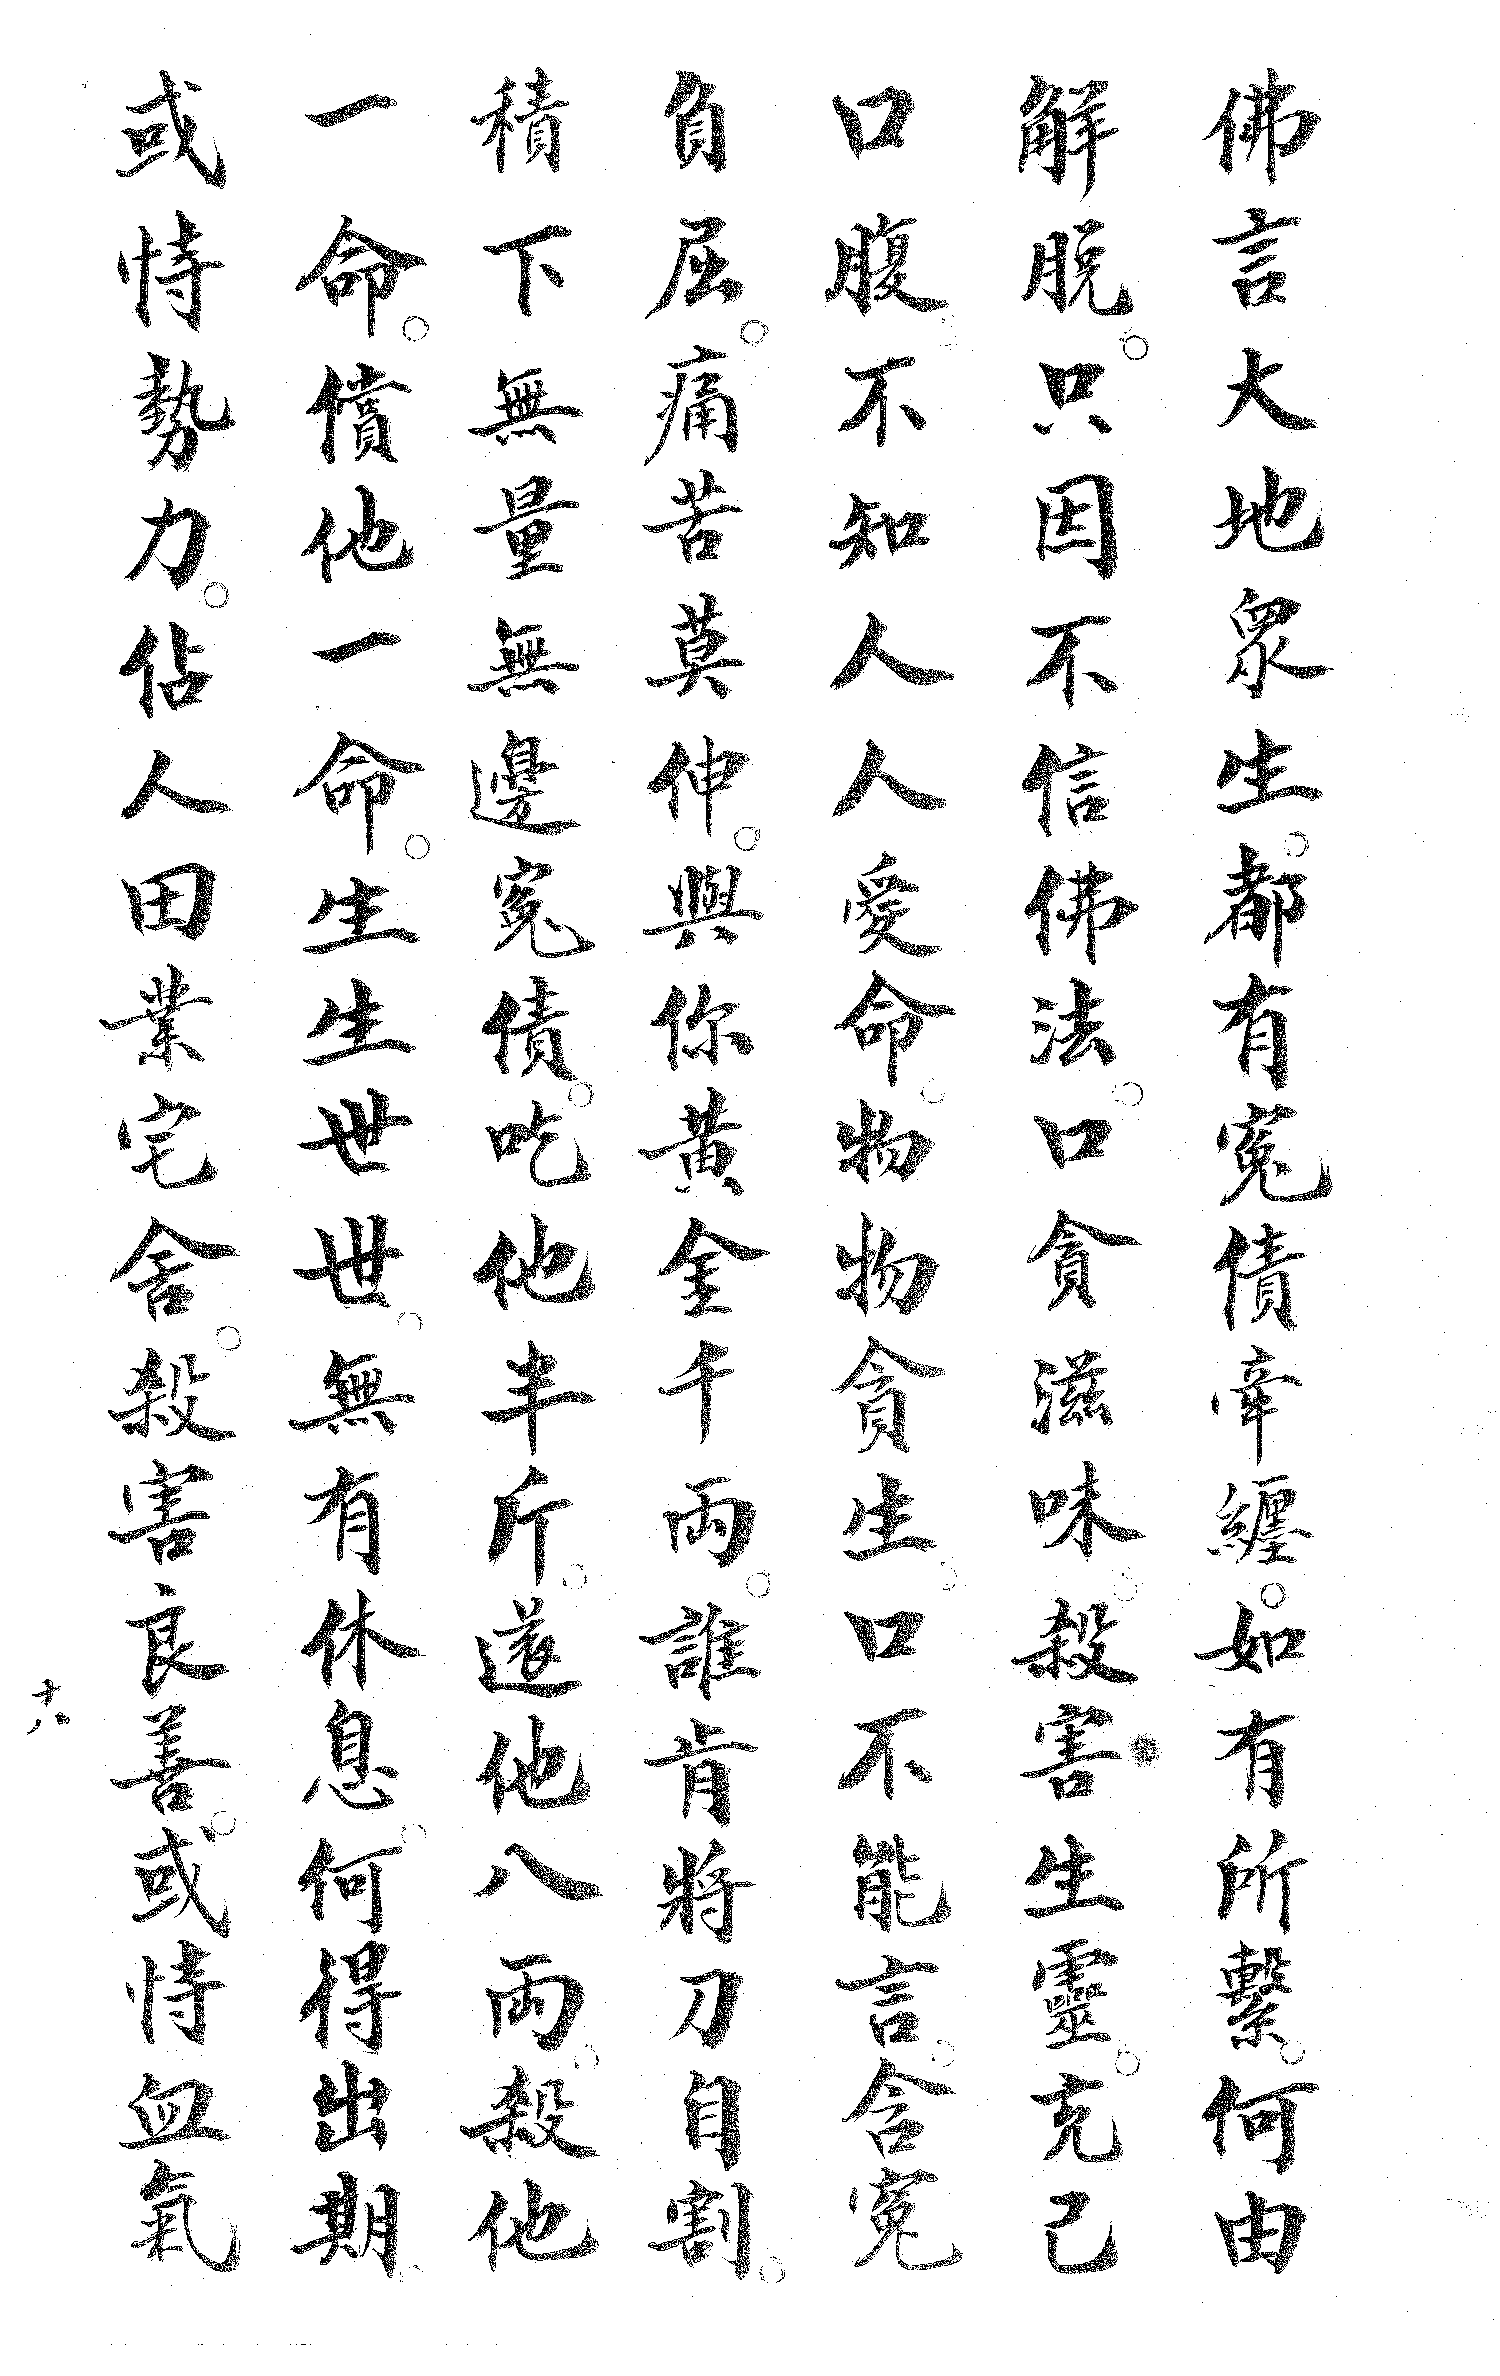 佛言大地眾生。都有冤債牽纏。如有所繫。何由
解脫。只因不信佛法。口貪滋味。殺害生靈。充己
口腹。不知人人愛命。物物貪生。口不能言。含冤
負屈。痛苦莫伸。與你黃金千両。誰肯將刀自割。
積下無量無邊冤債。吃他半斤。還他八両。殺他
一命。償他一命。生生世世。無有休息。何得出期。
或恃勢力。佔人田業宅舍。殺害良善。或恃血氣
十八